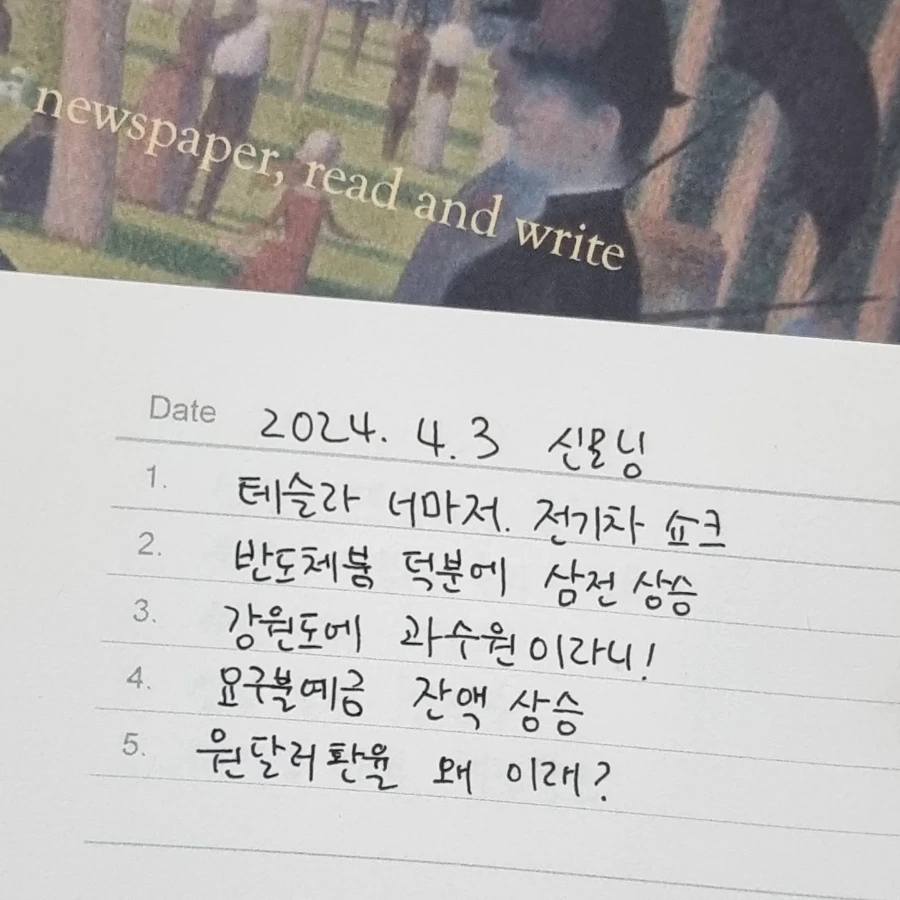 a newspaper, read and write
Date 2024. 4. 3 신모닝
1. 테슬라 너마저. 전기차 쇼크
2. 반도체붐 덕분에 삼전 상승
3. 강원도에 과수원이라니!
4. 요구불예금 잔액 상승
5. 원달러환율 왜 이래?